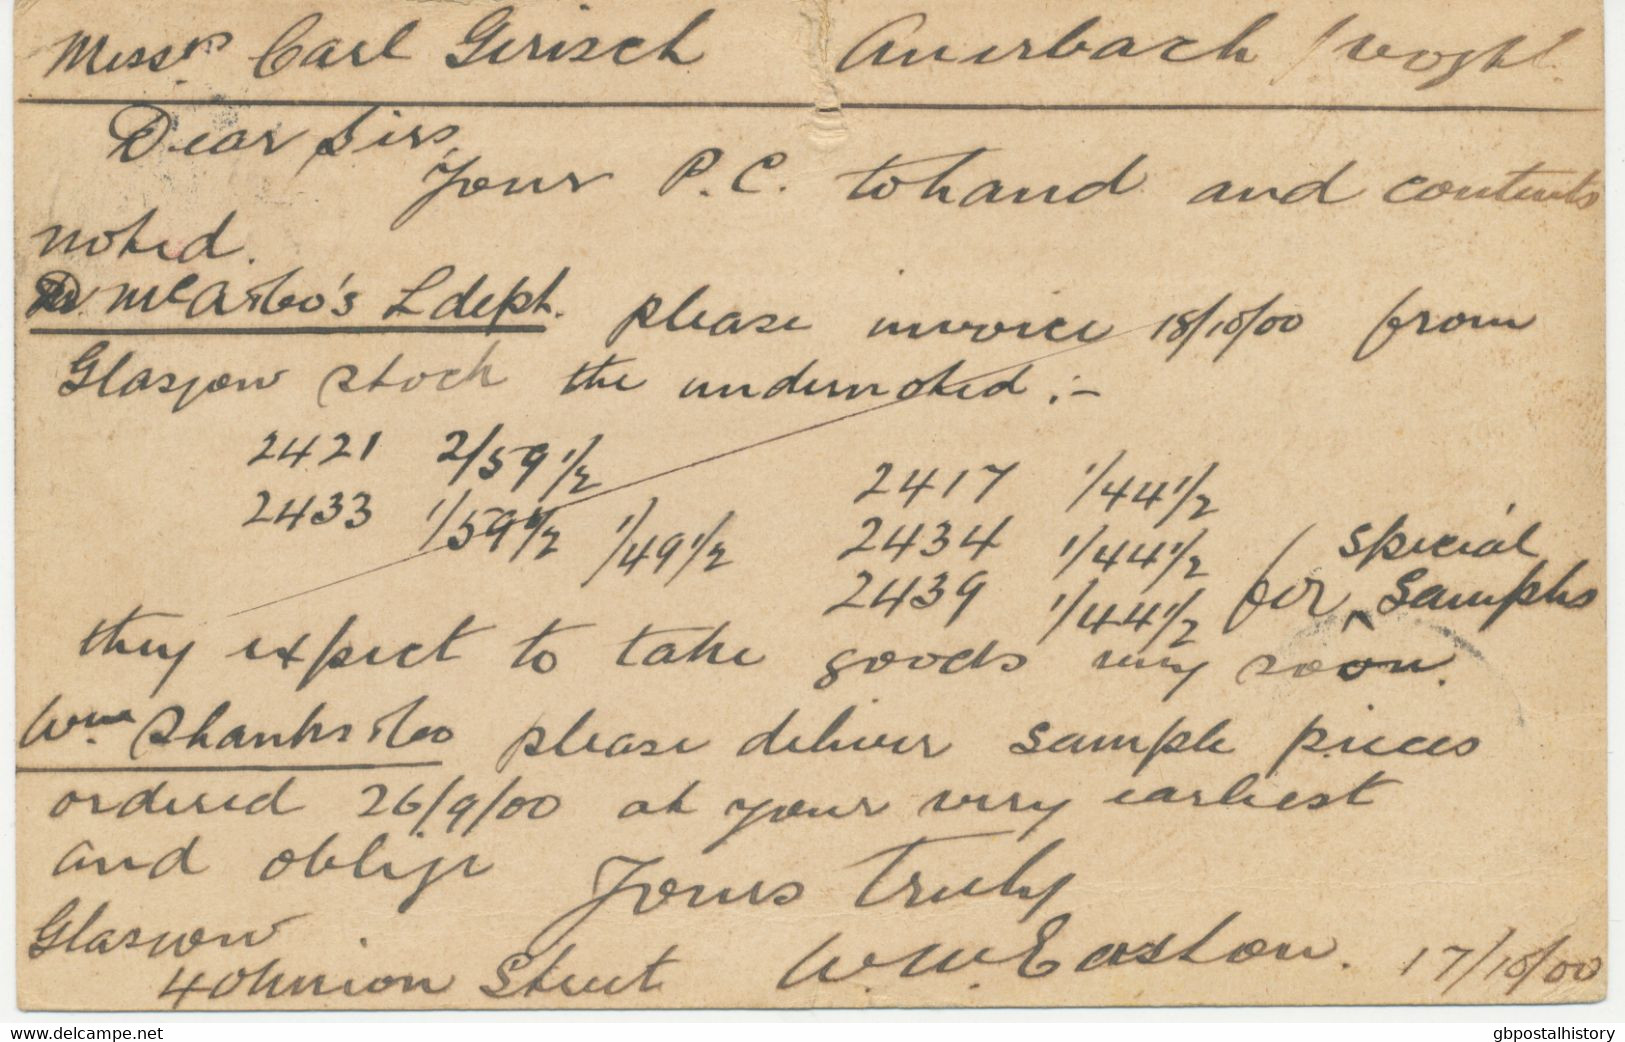 Messrs Carl Gerisch Auerbach / Vogtl.
Dear Sirs,
Your P.C. to hand and contents
noted.
Mc &Co's L dept. please invoice 18/10/00 from
Glasgow stock the undernoted :-
2421 2/59 1/2 2417 1/44 1/2
2433 1/59 1/2 1/49 1/2 2434 1/44 1/2 special
2439 1/44 1/2 for samples
they expect to take goods very soon.
Wm Shanks &Co please deliver sample pieces
ordered 26/9/00 at your very earliest
and oblige Yours Truly
Glasgow
4 Street W.W. Easton. 17/10/00
delcampe.net
gbpostalhistory